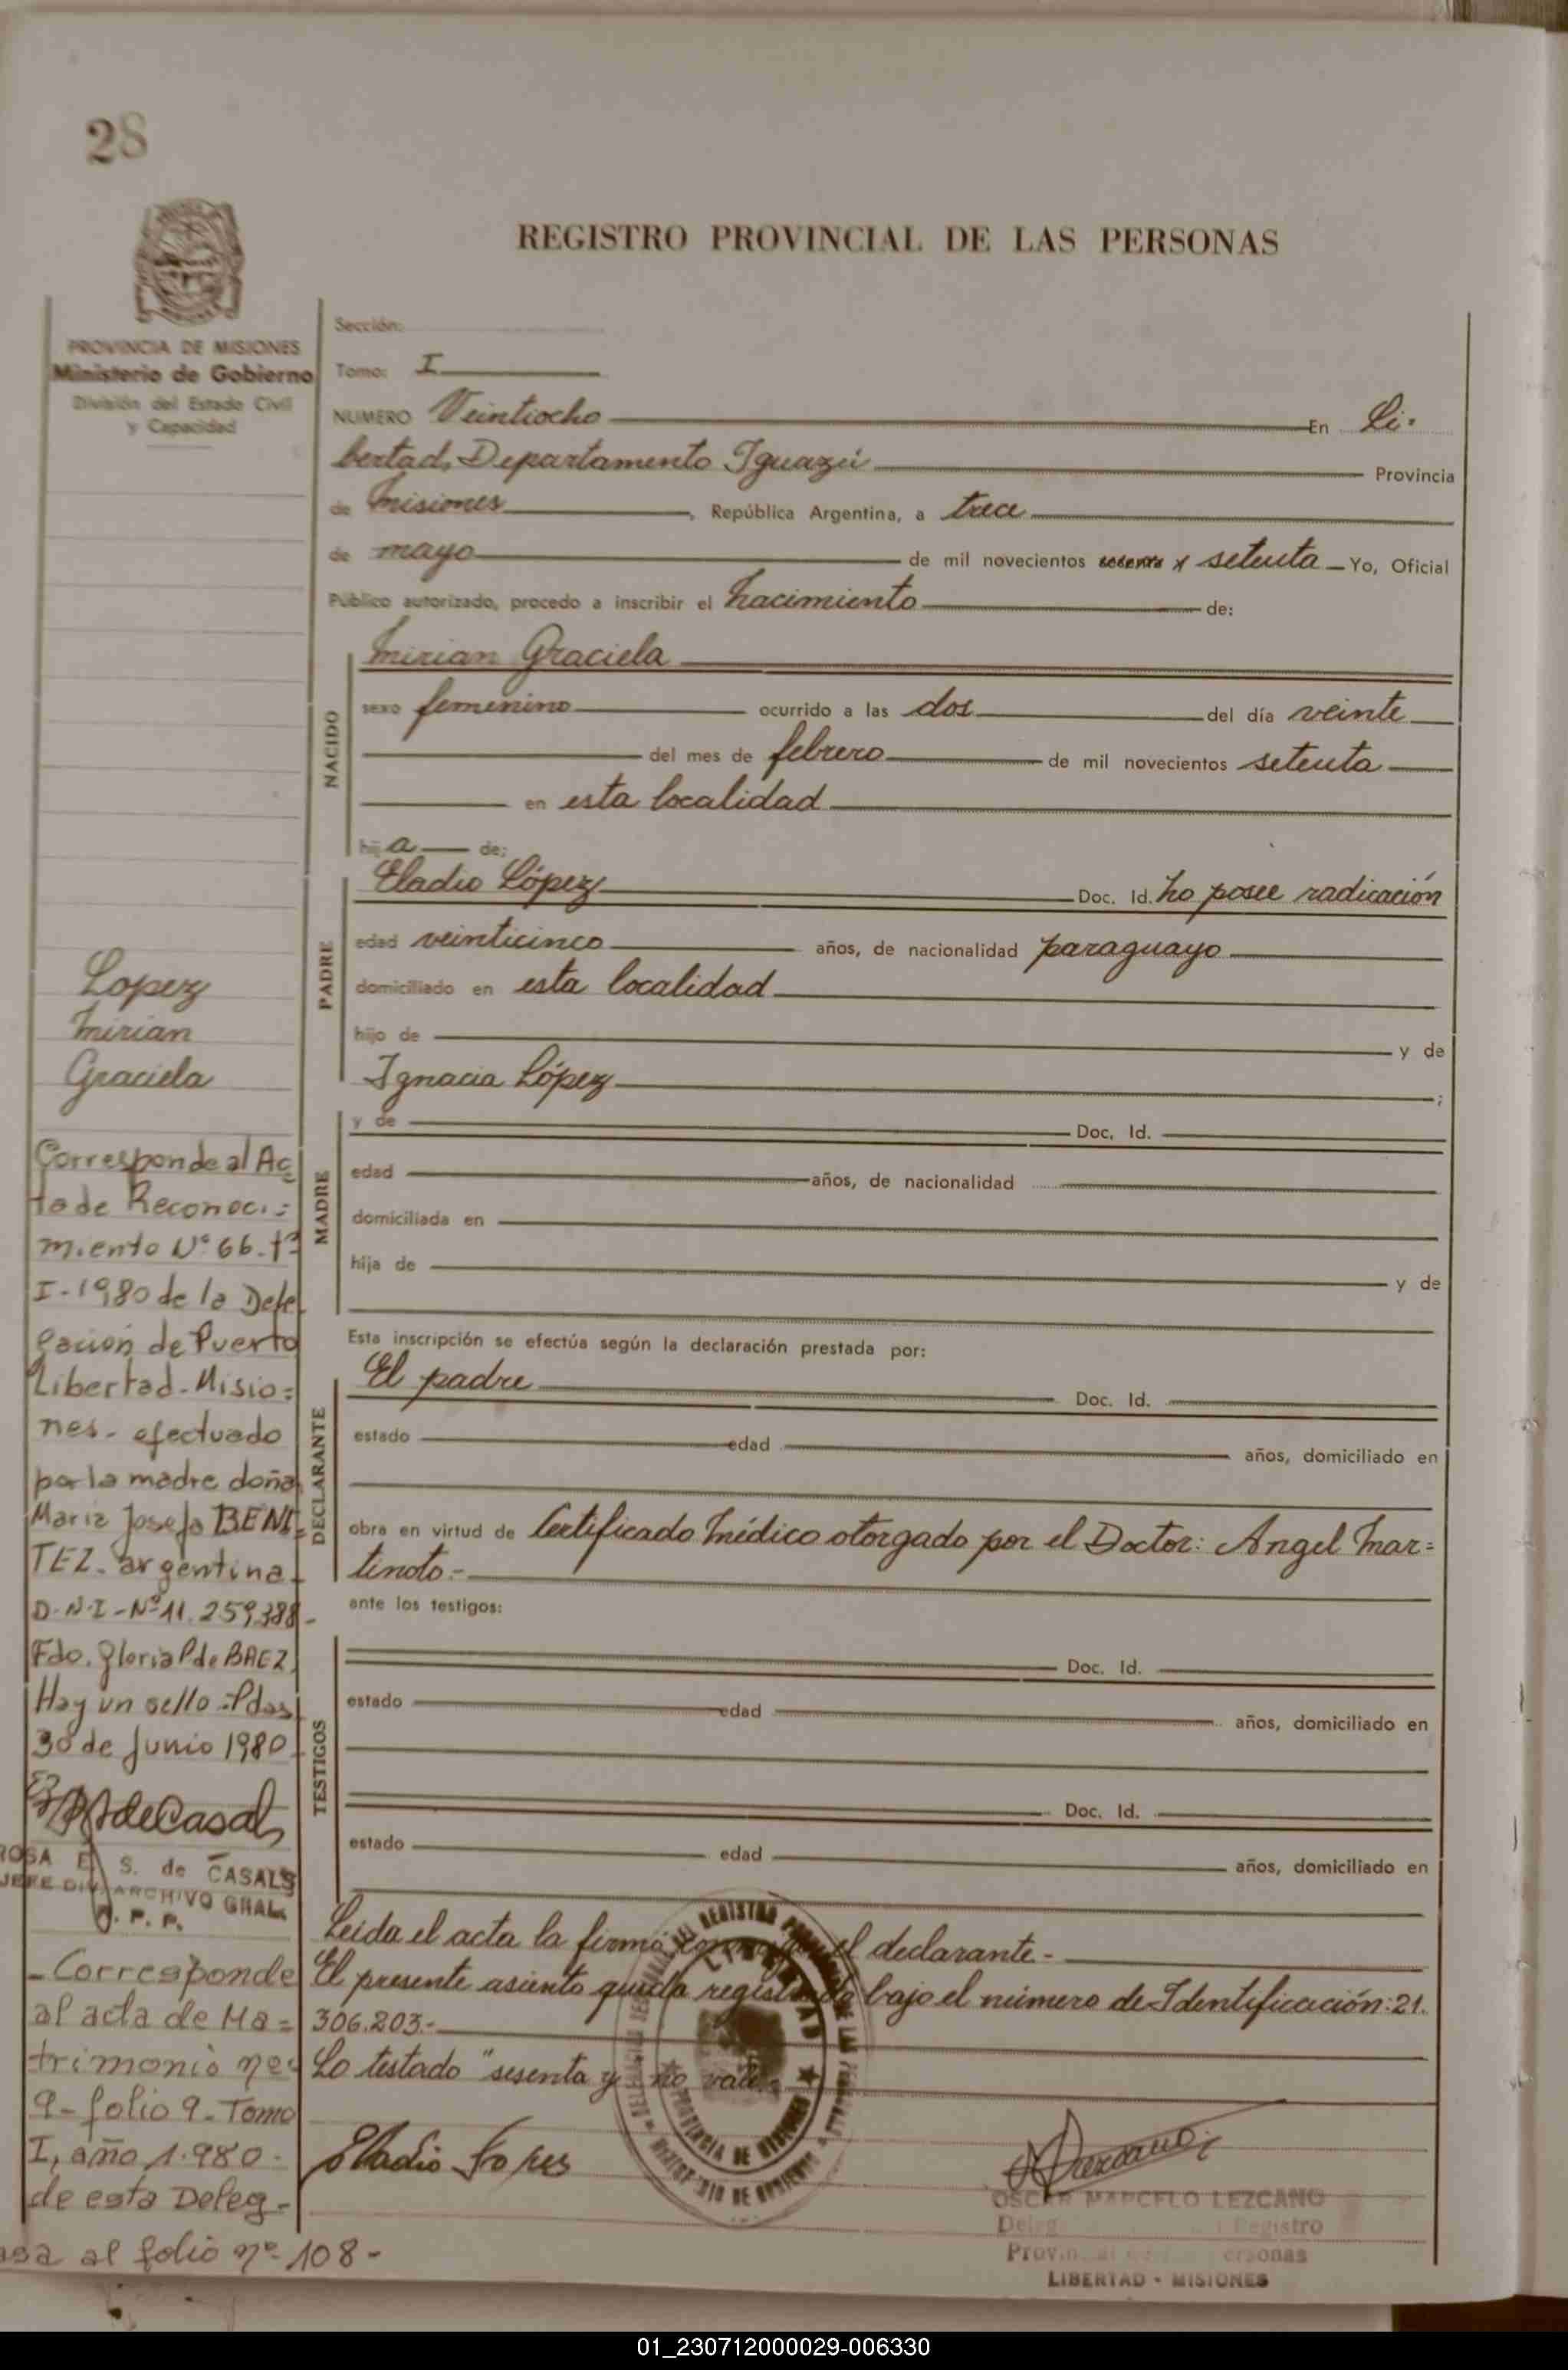 28
REGISTRO PROVINCIAL DE LAS PERSONAS
PROVINCIA DE MISIONES
Ministerio de Gobierno
División del Estado Civil
y Capacidad
Lopez
Mirian
Graciela
Corresponde al Ac
ta de Reconoci=
miento Nº 66-tº
I-1980 de la Dele
gacion de Puerto
Libertad-Misio=
nes- efectuado
por la madre doña
Maria Josefa BENI=
TEZ-argentina-
D.N.I-Nº 11.259.388-
Fdo. Gloria P de BAEZ
Hay un sello-Pdas
30 de Junio 1980
ROSA E. S. de CASALS
JEFE DIV. ARCHIVO GRAL.
R. P. P.
-Corresponde
al acta de Ma=
trimonio nº
9-folio 9-Tomo
I, año 1.980-
de esta Deleg-
asa al folio nº 108-
Sección:
Tomo: I
NUMERO Veintiocho En Li-
bertad, Departamento Iguazú Provincia
de Misiones, República Argentina, a trece
de mayo de mil novecientos sesenta y setenta Yo, Oficial
Público autorizado, procedo a inscribir el Nacimiento de:
NACIDO
Mirian Graciela
sexo femenino ocurrido a las dos del día veinte
del mes de febrero de mil novecientos setenta
en esta localidad
hija de:
PADRE
Eladio López Doc. Id. No posee radicación
edad veinticinco años, de nacionalidad paraguayo
domiciliado en esta localidad
hijo de y de
Ignacia López ;
MADRE
y de Doc. Id.
edad años, de nacionalidad
domiciliada en
hija de y de
Esta inscripción se efectúa según la declaración prestada por:
DECLARANTE
El padre Doc. Id.
estado edad años, domiciliado en
obra en virtud de Certificado Médico otorgado por el Doctor: Angel Mar=
tinoto.-
ante los testigos:
TESTIGOS
Doc. Id.
estado edad años, domiciliado en
Doc. Id.
estado edad años, domiciliado en
Leída el acta la firmó conmigo el declarante.-
El presente asiento queda registrado bajo el número de Identificación: 21.
306.203.-
Lo testado "sesenta y no vale.
LIBERTAD
PROVINCIA DE MISIONES
Eladio Lopes
OSCAR MARCELO LEZCANO
Registro
Provincial de las Personas
LIBERTAD - MISIONES
01_230712000029-006330